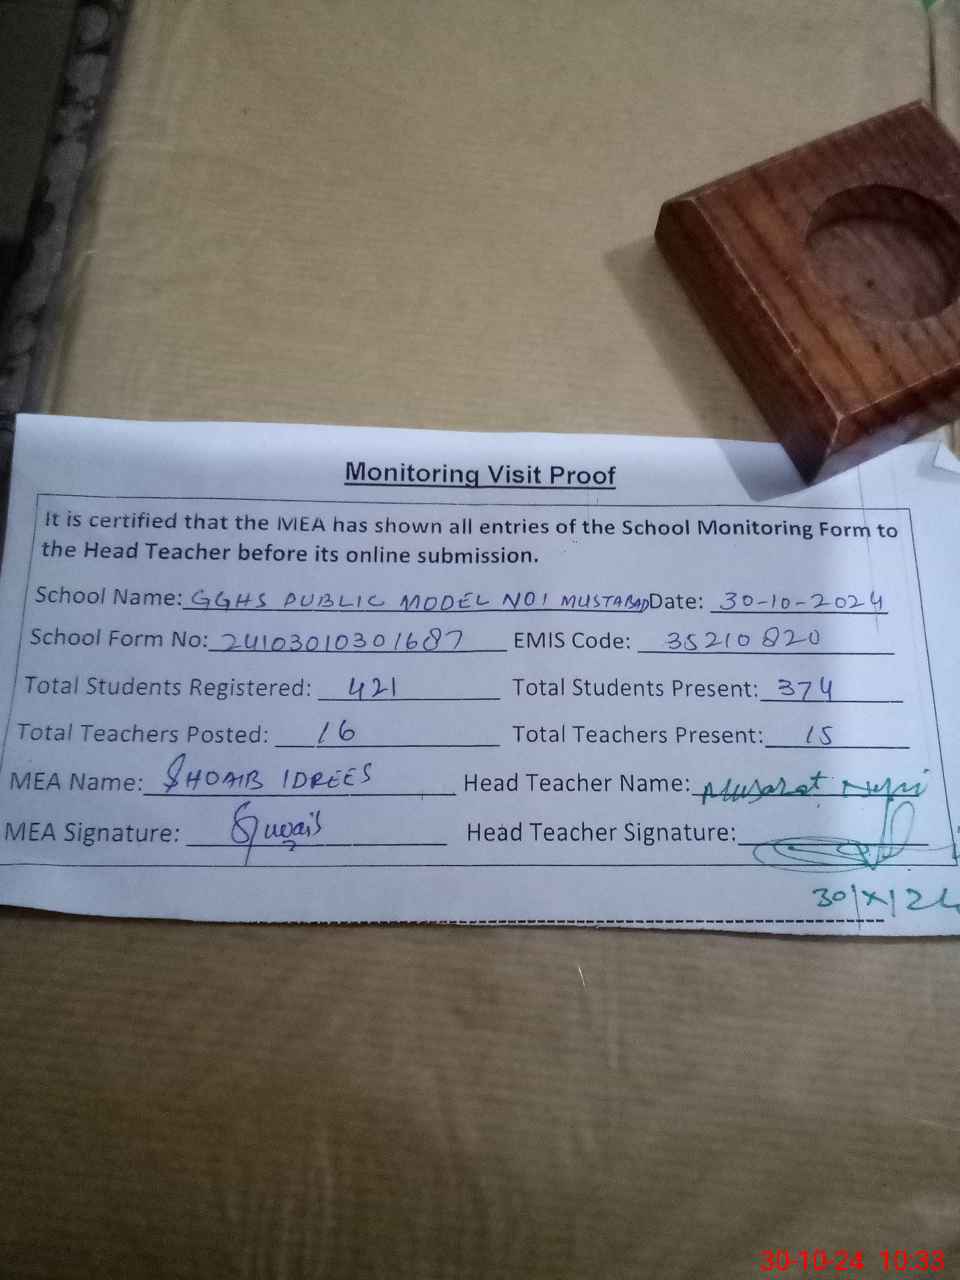 Monitoring Visit Proof
It is certified that the MEA has shown all entries of the School Monitoring Form to
the Head Teacher before its online submission.
School Name: GGHS PUBLIC MODEL NO1 MUSTABAD Date: 30-10-2024
School Form No: 24103010301687 EMIS Code: 35210820
Total Students Registered: 421 Total Students Present: 374
Total Teachers Posted: 16 Total Teachers Present: 15
MEA Name: SHOAIB IDREES Head Teacher Name: Musarat
MEA Signature: Head Teacher Signature:
30/X/24
30-10-24 10:33